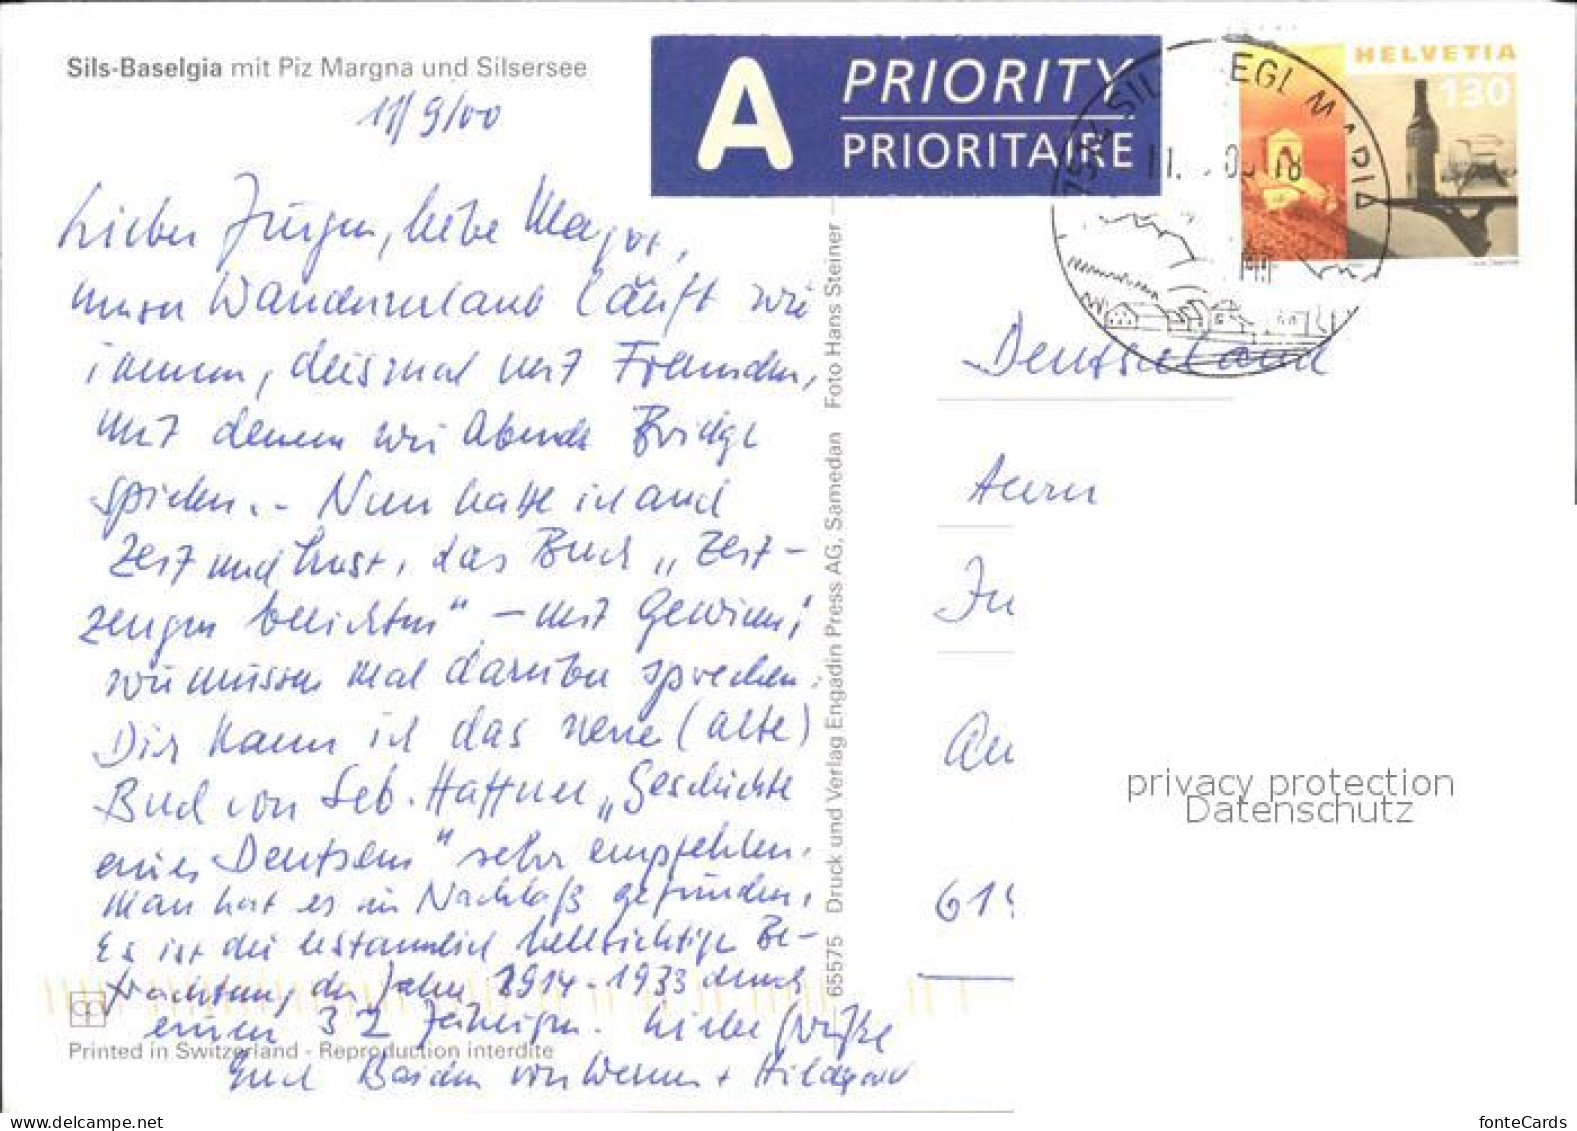 Sils-Baselgia mit Piz Margna und Silsersee
11/9/00
Lieber Jürgen, liebe Margot,
unser Wanderurlaub läuft wie
immer, diesmal mit Freunden,
mit denen wir Abends Bridge
spielen. - Nun hatte ich auch
Zeit und Lust, das Buch „Zeit-
zeugen belichten" - mit Gewinn;
wir müssen mal darüber sprechen.
Dir kann ich das neue (alte)
Buch von Seb. Haffner „Geschichte
eines Deutschen" sehr empfehlen.
Man hat es im Nachlaß gefunden.
Es ist die erstaunlich hellsichtige Be-
trachtung der Jahre 1914-1933 durch
einen 32 Jährigen. Liebe Grüße
Euch Beiden von Werner + Hildegard
Printed in Switzerland - Reproduction interdite
65575 Druck und Verlag Engadin Press AG, Samedan Foto Hans Steiner
A PRIORITY
PRIORITAIRE
7514 SILS SEGL MARIA
11. 00 18
HELVETIA
130
Deutschland
Herrn
Jü
An
619
privacy protection
Datenschutz
delcampe.net
fonteCards